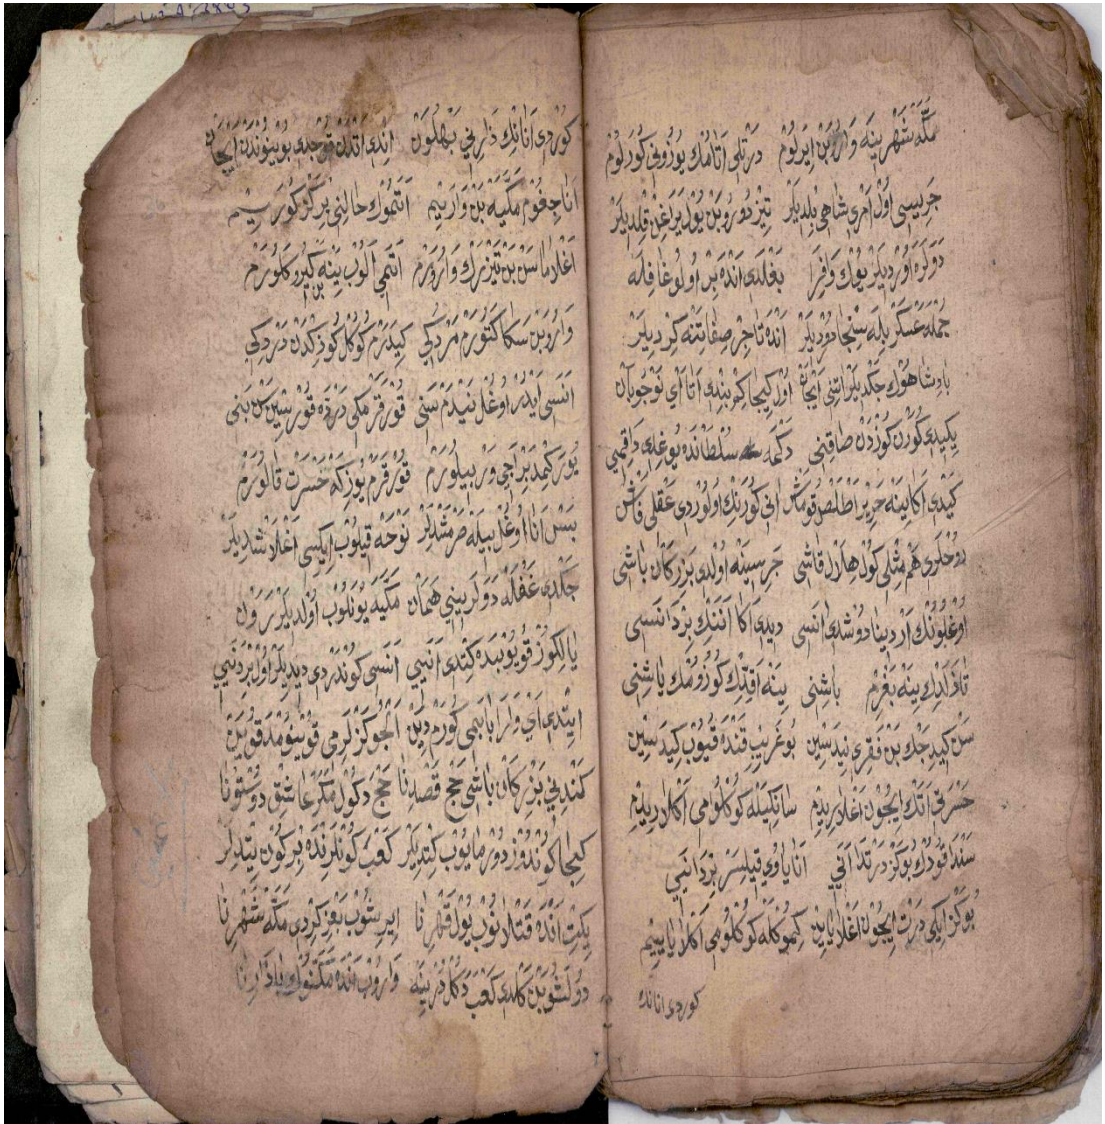 مَكَّه شَهْرِينَه وَارُبَنْ اِيرَلُومْ دَرْتلِى اَتَامُكْ يُوزُونِى كُورَلُومْ
جَرِيسِى اَوُلْ اَمْرِى شَاهِى بِلْدِيلَرْ تِيزْ دُورُوبَنْ يُولْ يَرَاغِنْ قِلْدِيلَرْ
دَوَلَرَه اُورْدِيلَرْ يُوكْ وَافِرَا بَغْلَدِى اَنْدَه بِرْ اُولُو غَافِلَه
جُمْلَه عَسْكَرْ بِلَه سِنْجَا دُوْدِيلَرْ اَنْدَه تَاجِرْ صِفَاتِنَه كِرْدِيلَرْ
بَادِشَاهُوكْ جَكْدِيلَرْ اَتِنِى اَوْزْ كِيجَا كِمْ بِنْدِى اَتَا اَىْ نَوْجُوَانْ
يِكِيدِى كُورَنْ كُوزْدَنْ صَاقِنِى دَكْمَه سُلْطَانْدَه يُوغِدِى
كَيْدِى اَكَا يِينَه حَرِيرْ اَطْلَصْ قُومَاشْ اَنِى كُورَنِكْ اُولُوردِى عَقْلِى فَاشْ
هَمْ مِثْلِى كُولْ هِلَالْ قَاشِى جَرِسِينَه اُولْدِى بَزِرْكَانْ بَاشِى
اُوغْلُونُكْ اَرْدِينَا دُوشْدِى اَنَسِى دِيدِى اَكَا اَنَنِكْ بِرْدَانَسِى
تَازَلَدِكْ يِينَه بَغْرِمْ بَاشِنِى يِينَه اَقِتْدِكْ كُوزُومُكْ يَاشِنِى
سَنْ كِيدِجَكْ بَنْ فَقِرِى نِيدَسِينْ بُو غَرِيبْ قَنْدَه قُيُوبْ كِيدَسِينْ
حَسْرَتِى اَتَكْ اِيجُونْ اَغْلَارِيدِمْ سَانِكِيلَه كُوكُلُومِى اَكْلَارِيدِمْ
سَنْدَا قُودُكْ بُوكَزْ دَرْتَدَا اَنِى اَنَا يَاوِى قِيلِسَرْ بِرْدَانَيِى
بُوكَزْ اِيكِى دَرْتْ اِيجُونْ اَغْلَايَايِينْ كِيمُوكَلَه كُوكُلُومِى اَكْلَايَايِينِمْ
كوردى انانك
كُورْدِى اَنَانِكْ زَارِنِى بَهْلُونْ اِنْدِى اَتْدَنْ قُوجْدِى بُويْنُونْدَنْ
اَنَا جِقُومْ مَكَّيَه بَنْ وَارَيِيمْ اَتَمُوكْ حَالِنِى بِرْكَزْ كُورَيِيمْ
اَغْلَامَا سَنْ بَنْ تِيزْرَكْ وَارُورَمْ اَتَمِى اَلُوبْ يِينَه كِيرُو كَلُورَمْ
وَارُوبَنْ سَكَا كَتُورَمْ مَرْدَكِى كِيدَرَمْ كُوكُلْ كُوزِكْدَنْ دَرْدَكِى
اَنَسِى اَيْدُرْ اُوغُلْ نِيدَمْ سَنِى قُورْقَرَمْكِى دَرْدَه قُورْسِينْ سَنْ بَنِى
يُورَكِمْدَ بِرْ اَجِى وَرْ بِيلُورَمْ قُورْقَرَمْ يُوزِكَه حَسْرَتْ قَالُورَمْ
بَسْ اَنَا اُوغُلْ بِيلَه صَرْمَشْدِلَرْ نَوْحَه قِيلُوبْ اِيكِسِى اَغْلَاشْدِيلَرْ
جَكْدِى غَفْلَه دَوَلَرِينِى هَمَانْ مَكَّيَه يُونَلُوبْ اُولْدِيلَرْ رَوَانْ
يَالِكُوزْ قُويُوبَدَه كِتْدِى اَنَيِى اَنَسِى كُونْدَرْدِى دِيدِيلَرْ اُولْ بِرْدَنَيِى
اِيتْدِى اَىْ وَارَا بَابَمِى كُورَمْ دِينْ
كَنْدِيِى بَزِرْكَانْ بَاشِى حَجْ قَصْدِنَا حَجْ دَكُولْ مَكَرْ عَاشِقْ دُوسْتُونَا
كِيجَا كُونْدُوزْ دُورْمَايُوبْ كِتْدِيلَرْ كَعْبَ كُونْلَرِنْدَه بِرْ كُونْ يِتْدِيلَرْ
يِكِتْ اَنْدَه قَتْلَانُوبْ يُولْ قَهْرِنَا اِيرِشُوبْ بَغِرْ كِرْدِى مَكَّه شَهْرِنَا
دُولَشُوبَنْ كَلْدِى كَعْبَ وَارُوبْ اَنْدَه مَكَّنُوكْ بَازَارِنَا